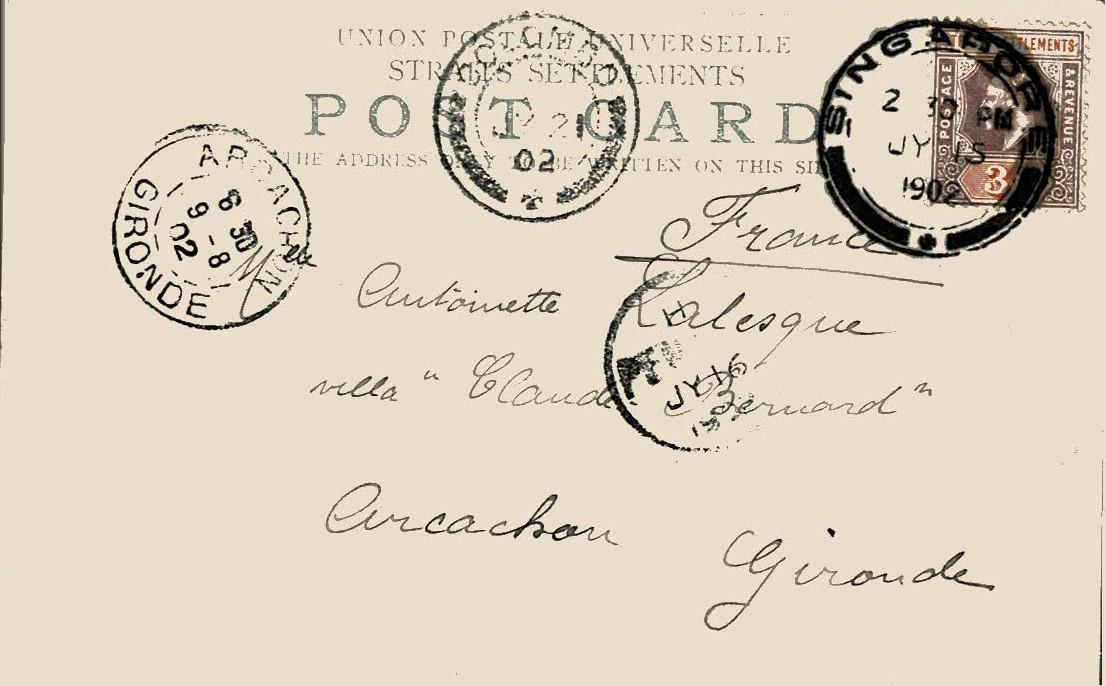 UNION POSTALE UNIVERSELLE
STRAITS SETTLEMENTS
POST CARD
THE ADDRESS ONLY TO BE WRITTEN ON THIS SIDE
SETTLEMENTS
POSTAGE
& REVENUE
3
SINGAPORE
2 30 PM
JY 15
1902
JY 21
02
ARCACHON
6 30
9 - 8
02
GIRONDE
France
Mlle
Antoinette Lalesque
villa "Claude Bernard"
JY 16
Arcachon Gironde